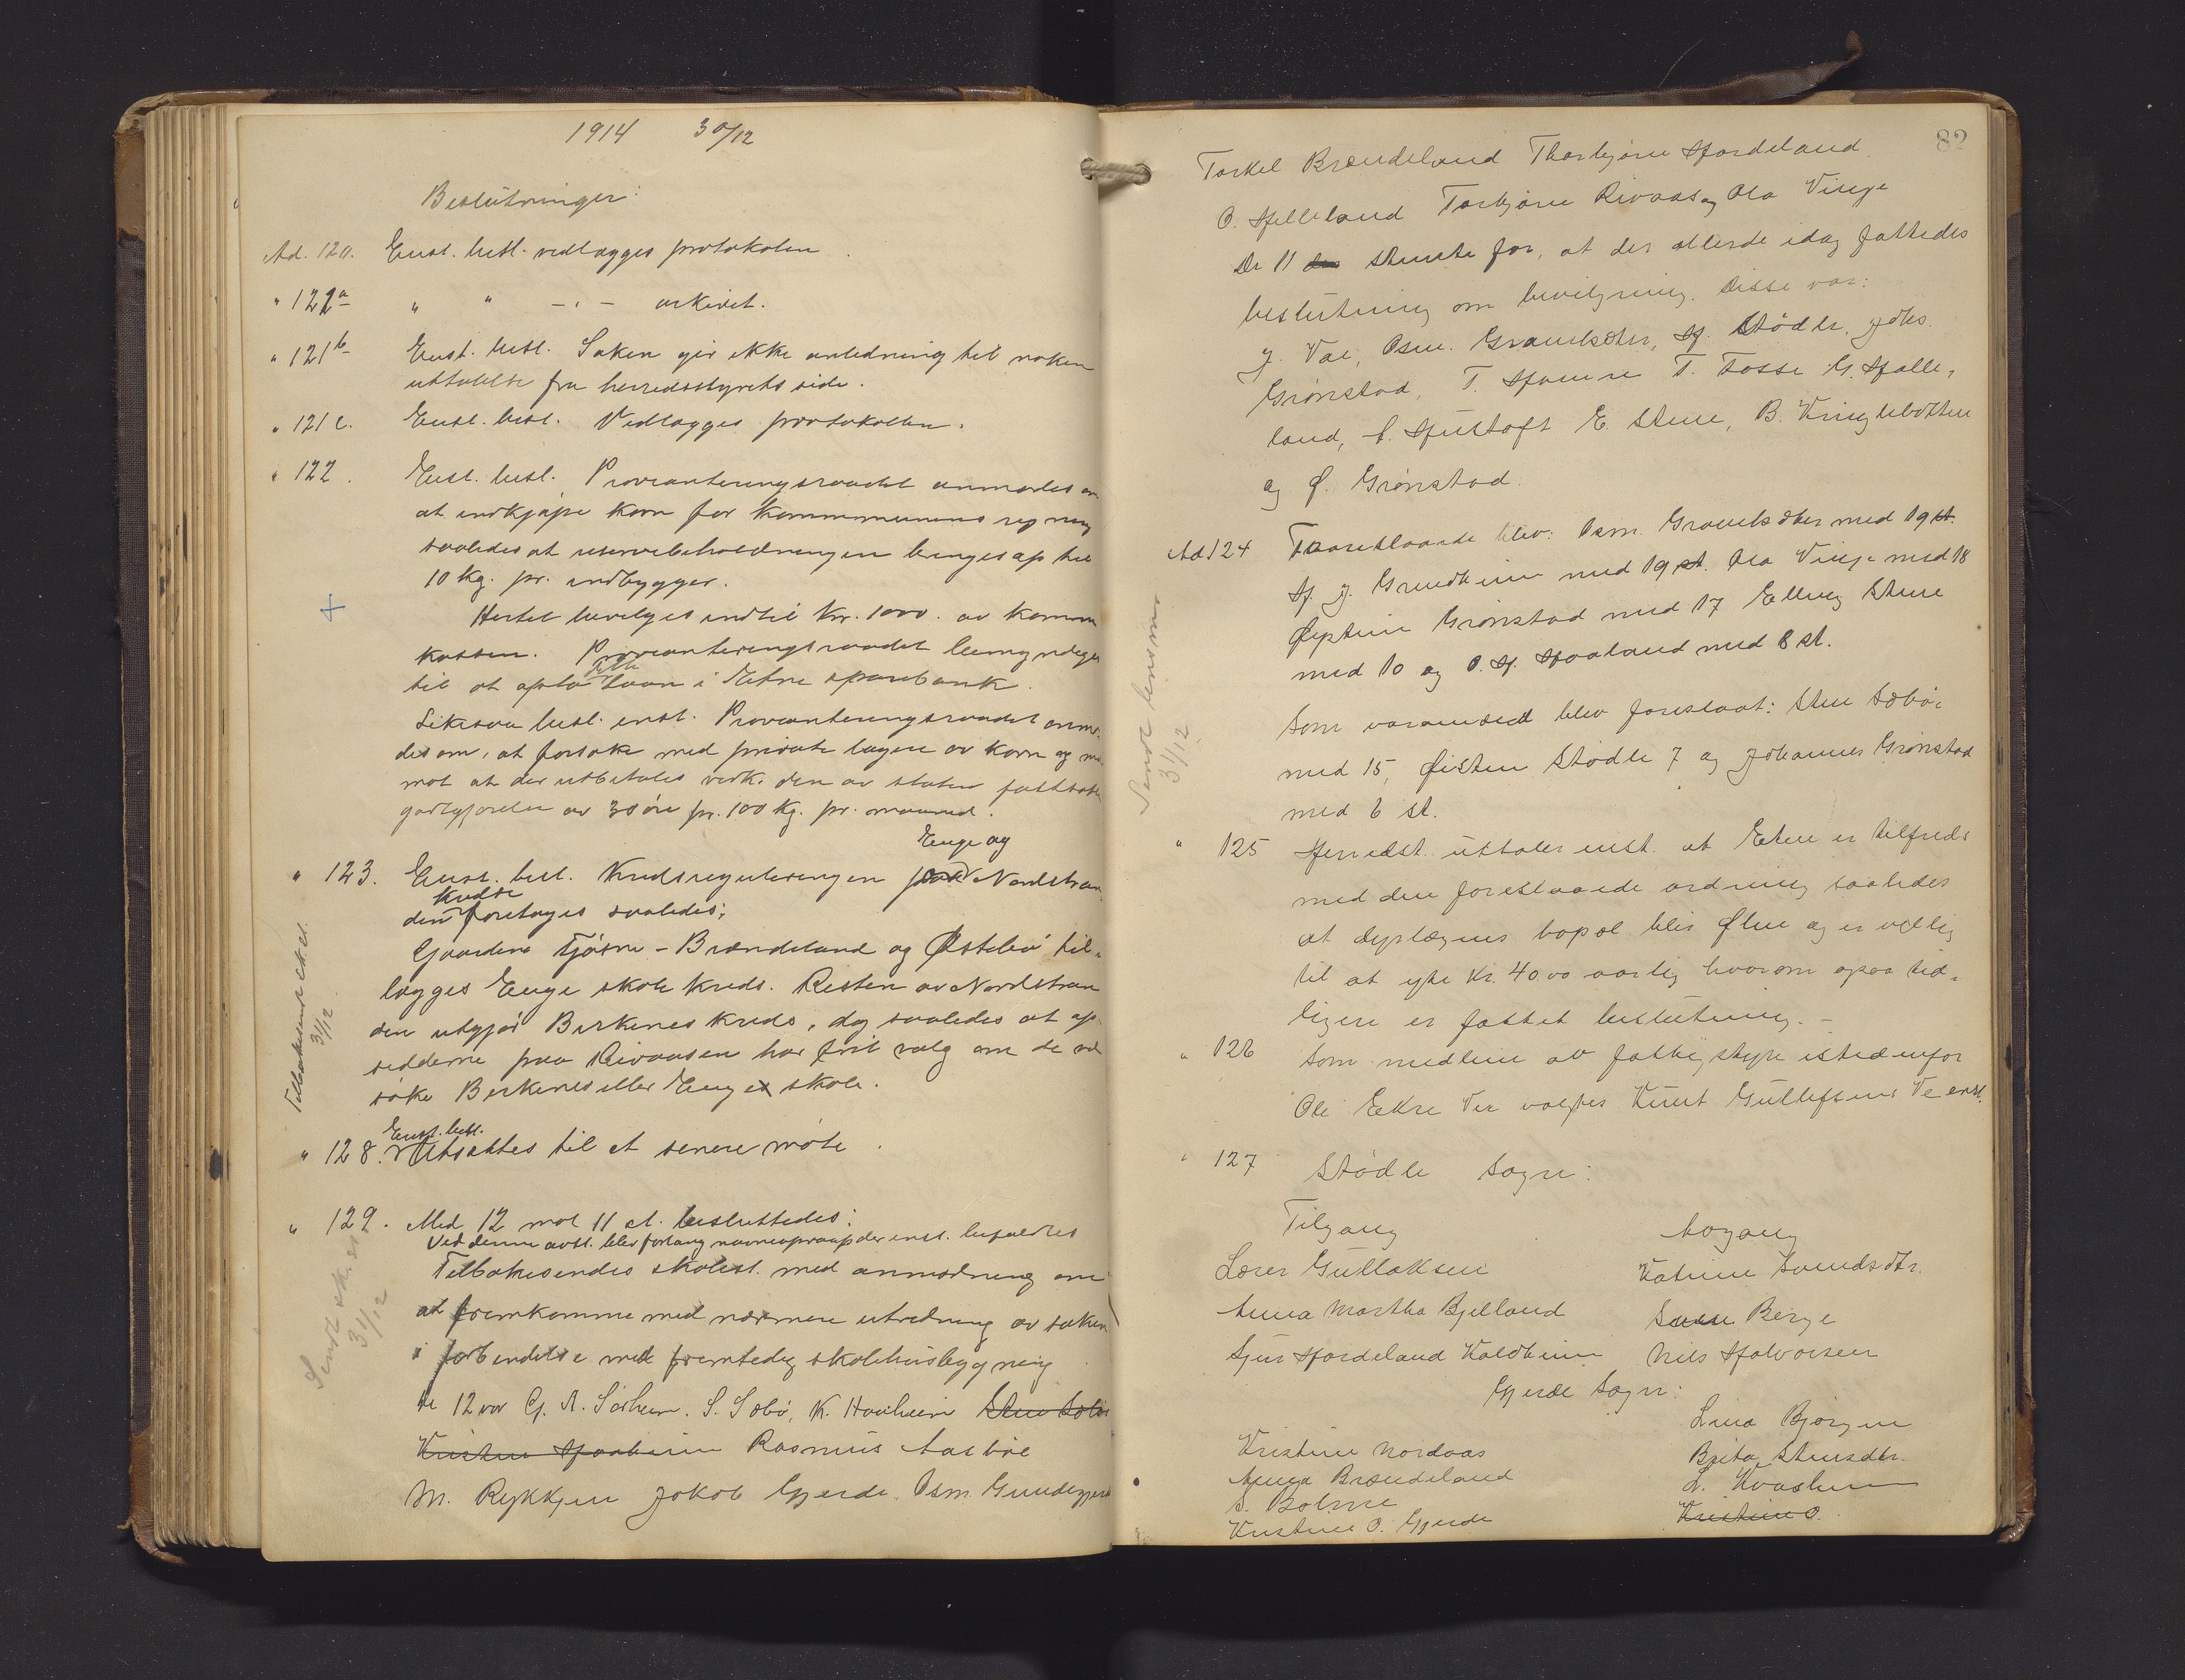 1914 30/12
Beslutninger:
Ad. 120. Enst. besl. vedlægges protokolen.
" 121a " " -"- arkivet.
" 121b Enst. besl. Saken gir ikke anledning til noken
uttalelse fra herredsstyrets side.
" 121c. Enst. besl. Vedlægges protokollen.
" 122. Enst. besl. Provianteringsraadet anmodes om
at indkjøpe korn for kommunens regning
saaledes at reservebeholdningen bringes op til
10 kg. pr. indbygger.
Hertil bevilges indtil Kr. 1000. av komm
kassen. Provianteringsraadet bemyndiges
til at opta dette laan i Etne sparebank.
Likesaa besl. enst. Provianteringsraadet anmo-
des om, at forsøke med private lagere av korn og mel
mot at der utbetales vedk. den av staten fastsatte
godtgjørelse av 30 øre pr. 100 kg. pr. maaned.
" 123. Enst. besl. Kredsreguleringen for Enge og Nordstran
den kredse foretages saaledes:
Gaardene Tjøsne - Brændeland og Østebø til-
lægges Enge skolekreds. Resten av Nordstran
den utgjør Birkenes kreds, dog saaledes at op-
sidderne paa Rivaasen har frit valg om de vil
søke Berkenes eller Enge skole.
Tilbakesendt sk.st.
31/12
" 128. Enst. besl. Utsættes til et senere møte.
" 129. Med 12 mot 11 st. besluttedes:
Ved denne avst. blev forlang navneopraap der enst. besluttedes
Tilbakesendes skolest. med anmodning om
at fremkomme med nærmere utredning av saken
i forbindelse med fremtidig skolehusbygning
Sendt sk.st.
31/12
De 12 var G. A. Sørheim. S. Sæbø, K. Haaheim Sten Sæbø
Kristen Haaheim Rasmus Aarbøe
M. Rykkjen Jakob Gjerde. Osm. Grindegjerde
82
Torkel Brændeland Thorbjørn Hordeland
O. Helleland Torbjørn Rivaas og Ola Vinje
De 11 stemte for, at der allerede idag fattedes
beslutning om bevilgning. Disse var:
J. Vae, Osm. Gravelsæter, H. Stødle, Johs.
Grønstad, T. Hamre T. Fosse G. Hælle-
land, A. Hustoft E. Stene, B. Kringlebotten
og Ø. Grønstad.
Ad 124 Foreslaaede blev: Osm. Gravelsæter med 19 st.
H. J. Grindheim med 19 st. Ola Vinje med 18
Øystein Grønstad med 17 Elling Stene
med 10 og O. H. Haaland med 8 st.
Som varamænd blev foreslaat: Sten Sæbø
med 15, Øisten Stødle 7 og Johannes Grønstad
med 6 st.
Sendt lensman
31/12
" 125 Herredst. uttaler enst. at Etne er tilfreds
med den foreslaaede ordning saaledes
at dyrlægens bopæl blir Ølen og er villig
til at yte Kr. 40000 aarlig hvorom ogsaa tid-
ligere er fattet beslutning. -
" 126 Som medlem av fattigstyre istedenfor
Ole Ekre Ve valgtes Knut Gulleiksens Ve enst.
" 127 Stødle Sogn:
Tilgang Avgang
Lærer Gullaksen Katrine Svendsdtr.
Anna Martha Bjelland Svein Berge
Sjur Hordeland Kaldheim Nils Halvorsen
Gjerde Sogn:
Lina Bjørgen
Kristine Nordaas Brita Stensdtr.
Anna Brændeland L. Kvasheim
S. Bolme Kristine O.
Kristine O. Gjerde